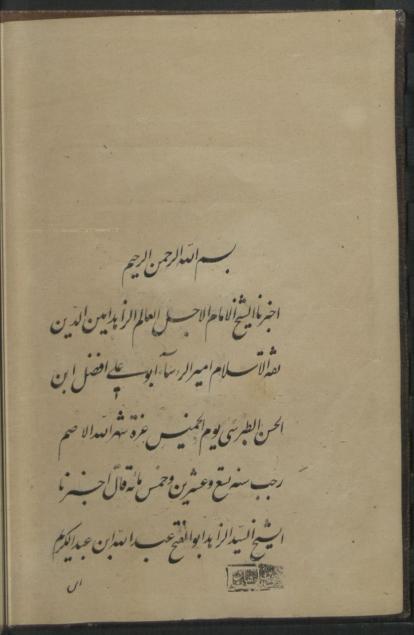 بسم الله الرحمن الرحیم
اخبرنا الشیخ الامام الاجل العالم الزاهد امین الدین
ثقة الاسلام امیر الرؤساء ابو علی افضل ابن
الحسن الطبرسی یوم الخمیس غرة شهر الله الاصم
رجب سنه تسع و عشرین و خمس مائة قال اخبرنا
الشیخ السید الزاهد ابو الفتح عبد الله ابن عبد الکریم